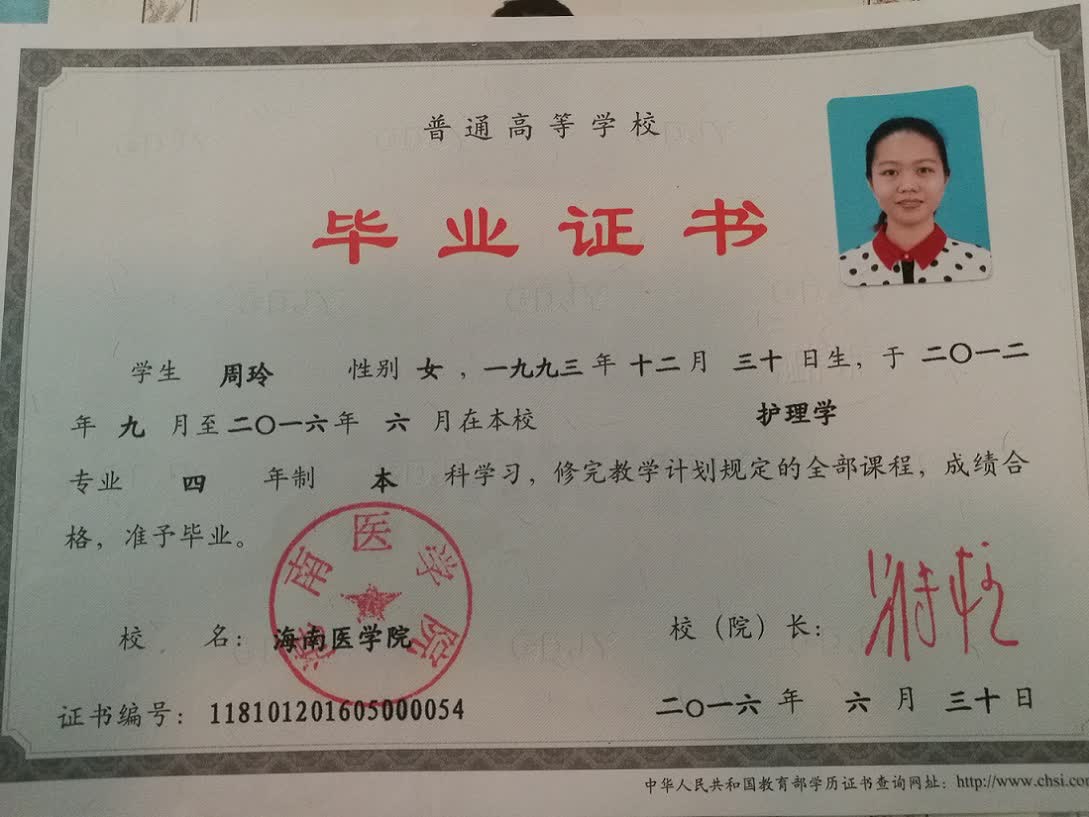 普通高等学校
毕业证书
学生 周玲 性别 女 ，一九九三 年 十二 月 三十 日生，于 二〇一二
年 九 月至 二〇一六 年 六 月在本校 护理学
专业 四 年制 本 科学习，修完教学计划规定的全部课程，成绩合
格，准予毕业。
海南医学院
校 名： 海南医学院
校（院）长：
证书编号： 118101201605000054
二〇一六 年 六 月 三十 日
中华人民共和国教育部学历证书查询网址：http://www.chsi.co